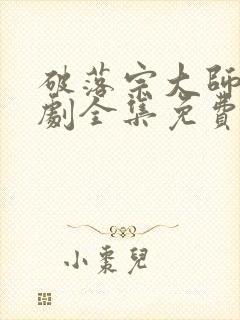 破落宗大師
劇全集免費
小棗兒